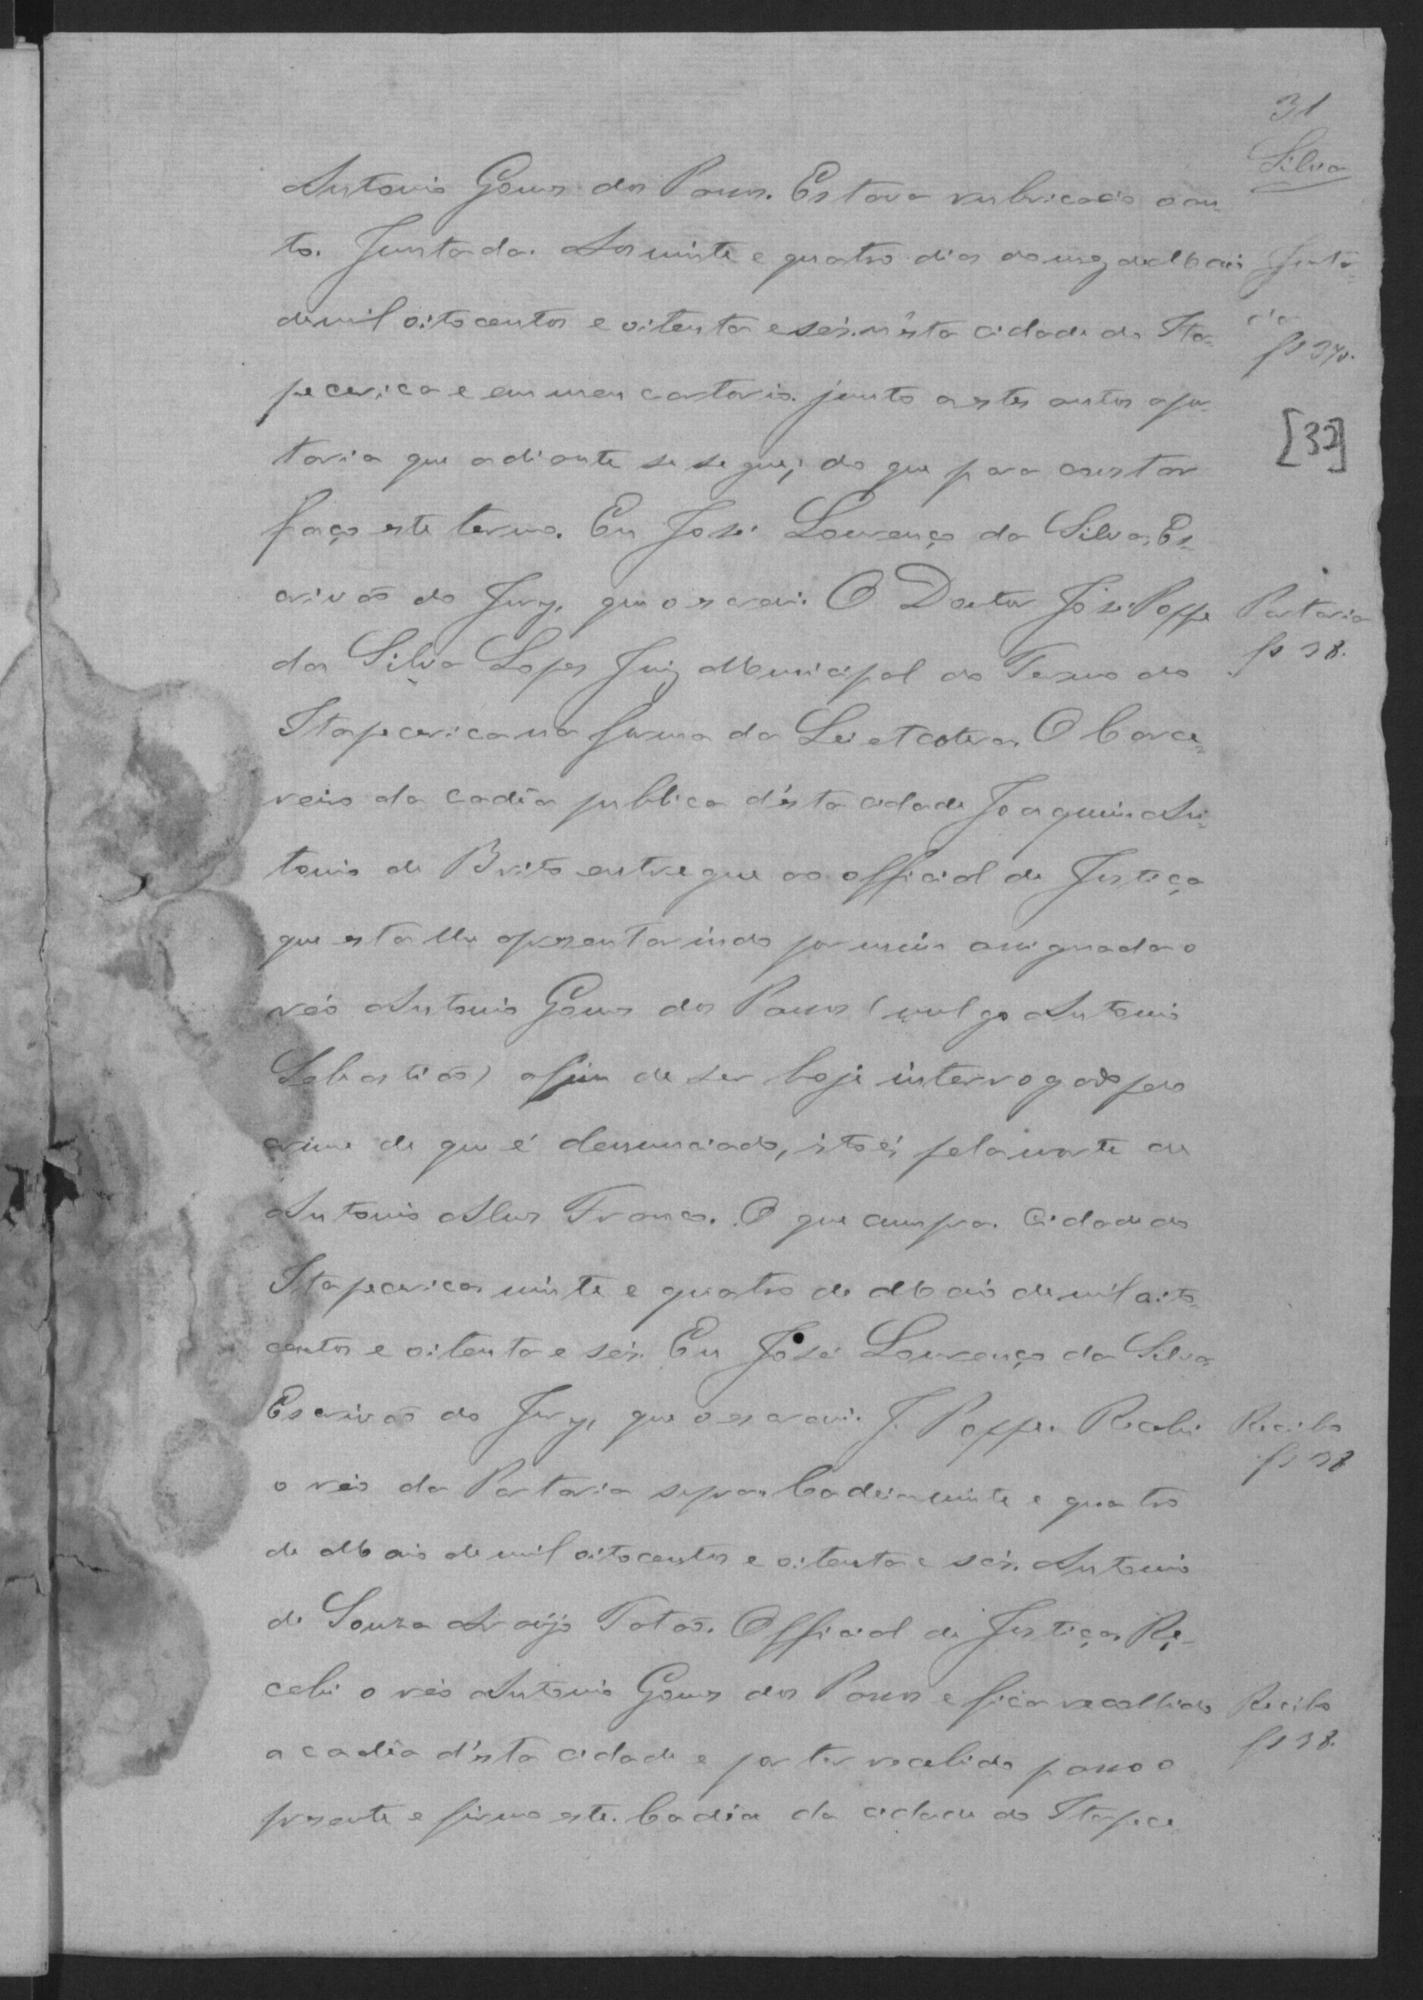 31
Silva
Antonio Gomes dos Passos. Estava rubricado o au-
to. Juntada. Aos vinte e quatro dias do mez de Maio
Junta-
da
fs 37v.
de mil oitocentos e oitenta e seis, n'esta cidade de Ita-
pecerica e em meu cartorio junto a estes autos a por-
[32]
taria que adiante se segue; do que para constar
faço este termo. Eu José Lourenço da Silva, Es-
crivão do Jury, que o escrevi. O Doutor José Poppe
Portaria
fs 38.
da Silva Lopes Juiz Municipal do Termo de
Itapecerica na forma da Lei etcetera. O Carce-
reiro da cadêa publica d'esta cidade Joaquim An-
tonio de Brito entregue ao official de Justiça
que esta lhe apresentar indo por mim assignada o
réo Antonio Gomes dos Passos (vulgo Antonio
Sebastião) afim de ser hoje interrogado pelo
crime de que é denunciado, isto é, pela morte de
Antonio Alves Franco. O que cumpra. Cidade de
Itapecerica vinte e quatro de Maio de mil oito-
centos e oitenta e seis. Eu José Lourenço da Silva
Escrivão do Jury, que o escrevi. J. Poppe. Recebi
Recibo
fs 38
o réo da Portaria supra. Cadeia vinte e quatro
de Maio de mil oitocentos e oitenta e seis. Antonio
de Souza Araújo Totão. Official de Justiça. Re-
cebi o réo Antonio Gomes dos Passos e fica recolhido
Recibo
fs 38.
a cadêa d'esta cidade e por ter recebido passo o
presente e firmo este. Cadêa da cidade de Itapece